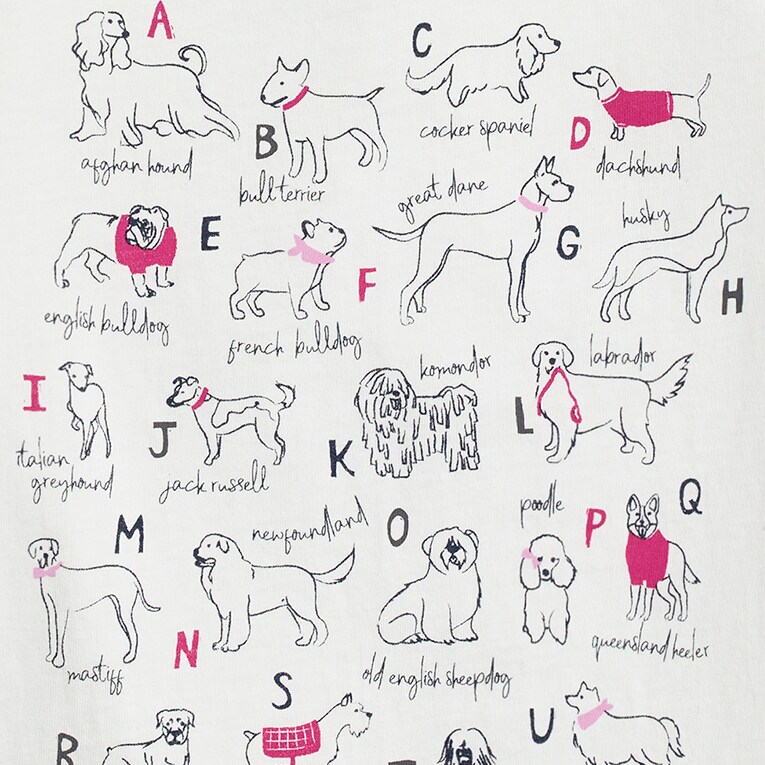 A
afghan hound
B
bull terrier
C
cocker spaniel
D
dachshund
E
english bulldog
F
french bulldog
great dane
G
husky
H
I
italian
greyhound
J
jack russell
K
komondor
L
labrador
M
mastiff
N
newfoundland
O
old english sheepdog
poodle
P
Q
queensland heeler
R
S
U